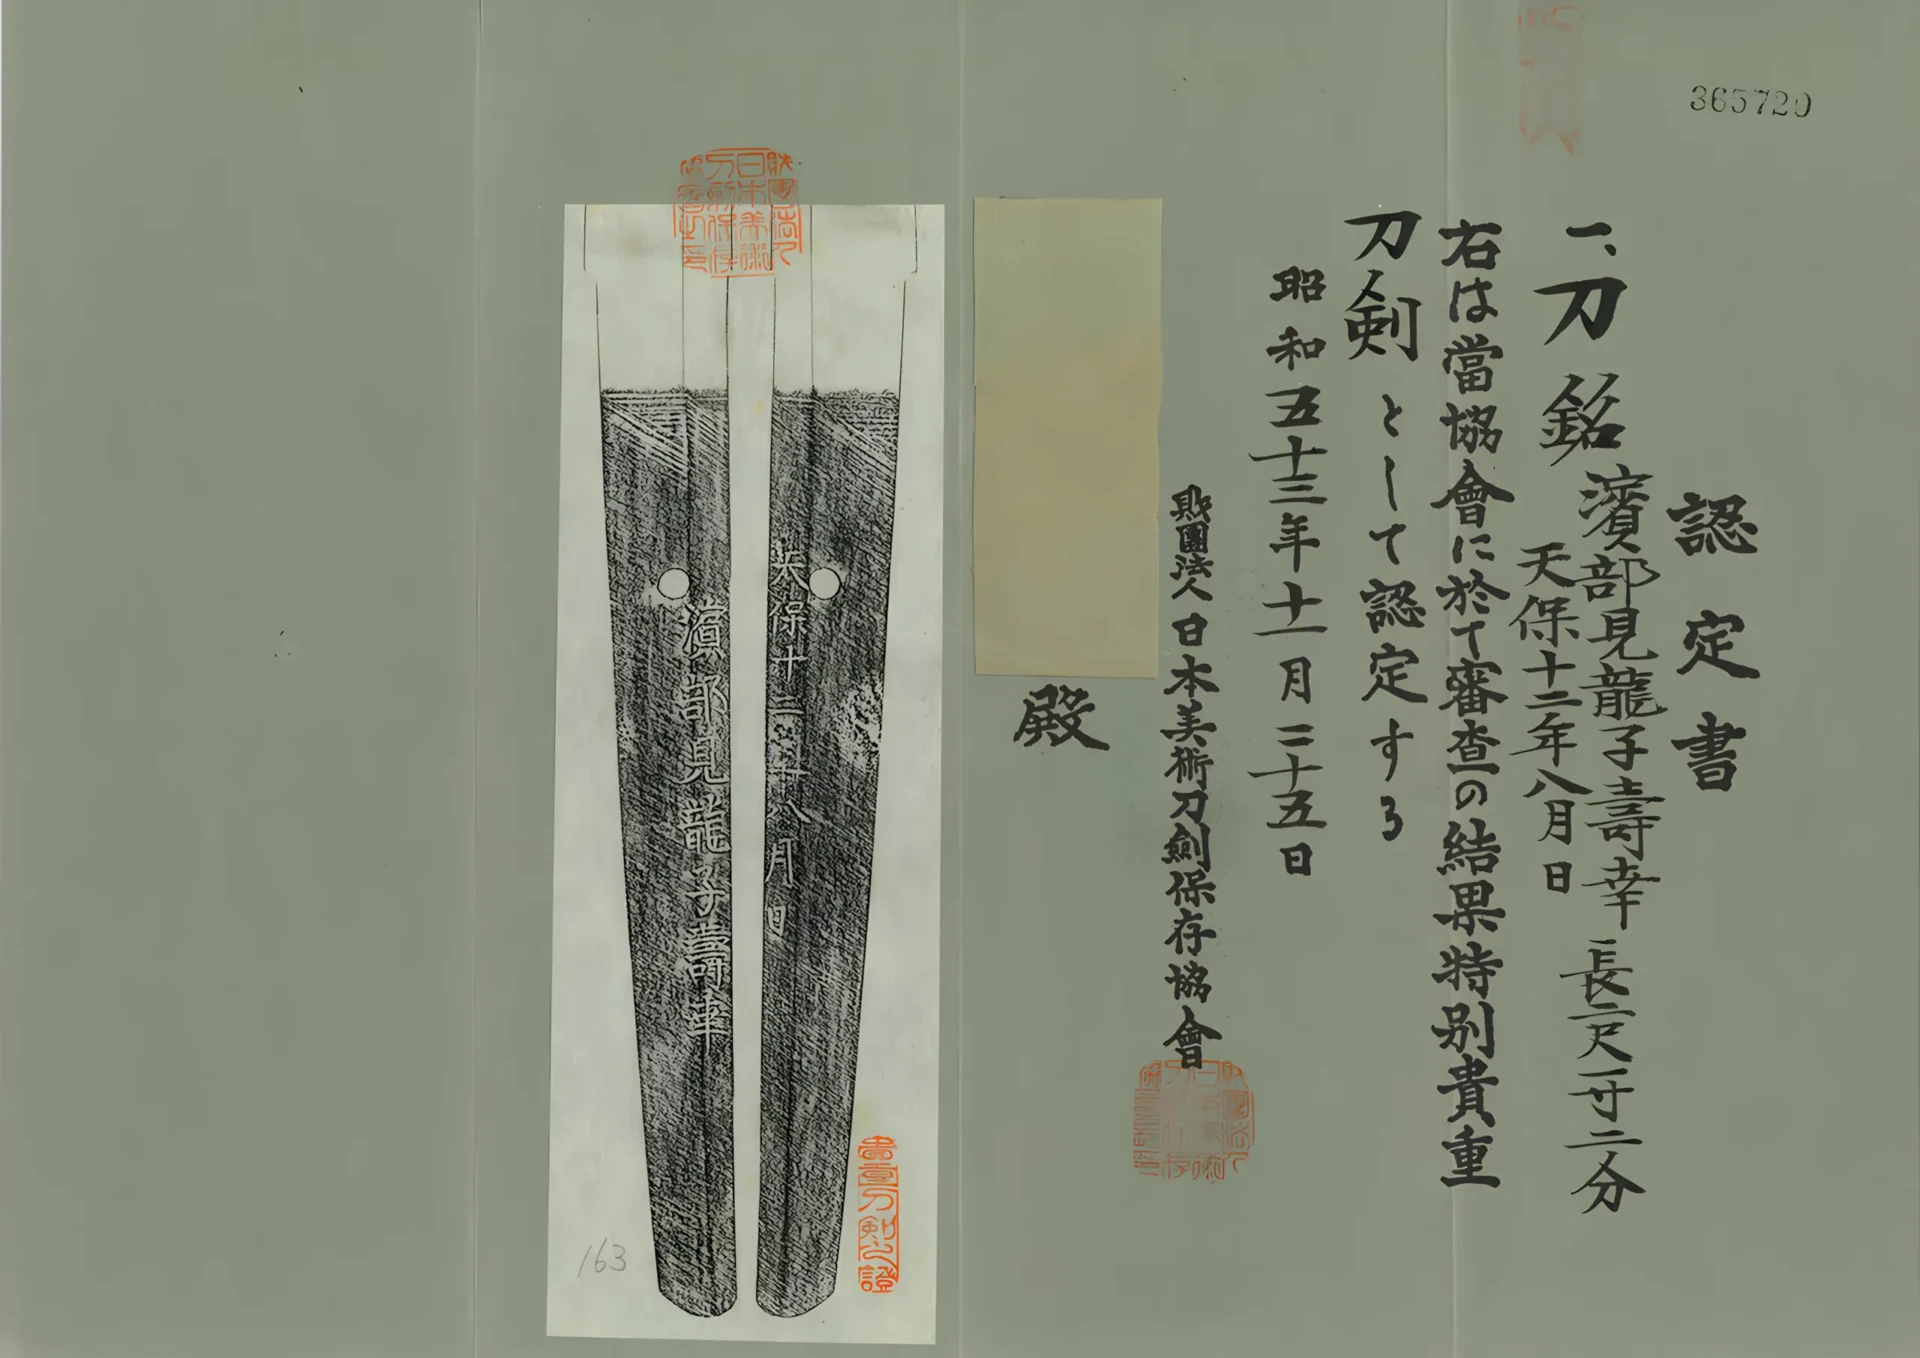 365720
認定書
一、刀 銘 濱部見龍子壽幸 長二尺一寸二分
天保十二年八月日
右は當協會に於て審査の結果特別貴重
刀剣として認定する
昭和五十三年十一月二十五日
財團法人 日本美術刀劍保存協會
殿
天保十二年八月日
濱部見龍子壽幸
貴重刀剣之證
163